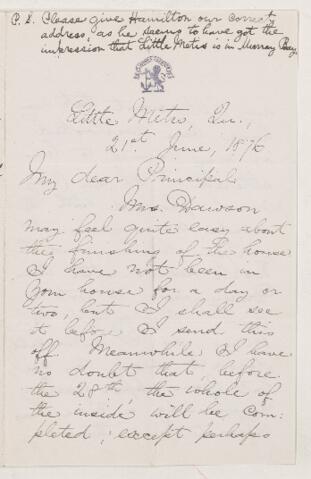 P. S. Please give Hamilton our correct
address, as he seems to have got the
impression that Little Metis is in Murray Bay.
Little Metis, Qu.,
21st June, 1876
My dear Principal
Mrs. Dawson
may feel quite easy about
the finishing of the house
I have not been in
your house for a day or
two, but I shall see
it before I send this
off. Meanwhile I have
no doubt that, before
the 28th, the whole of
the inside will be com:
pleted; except perhaps